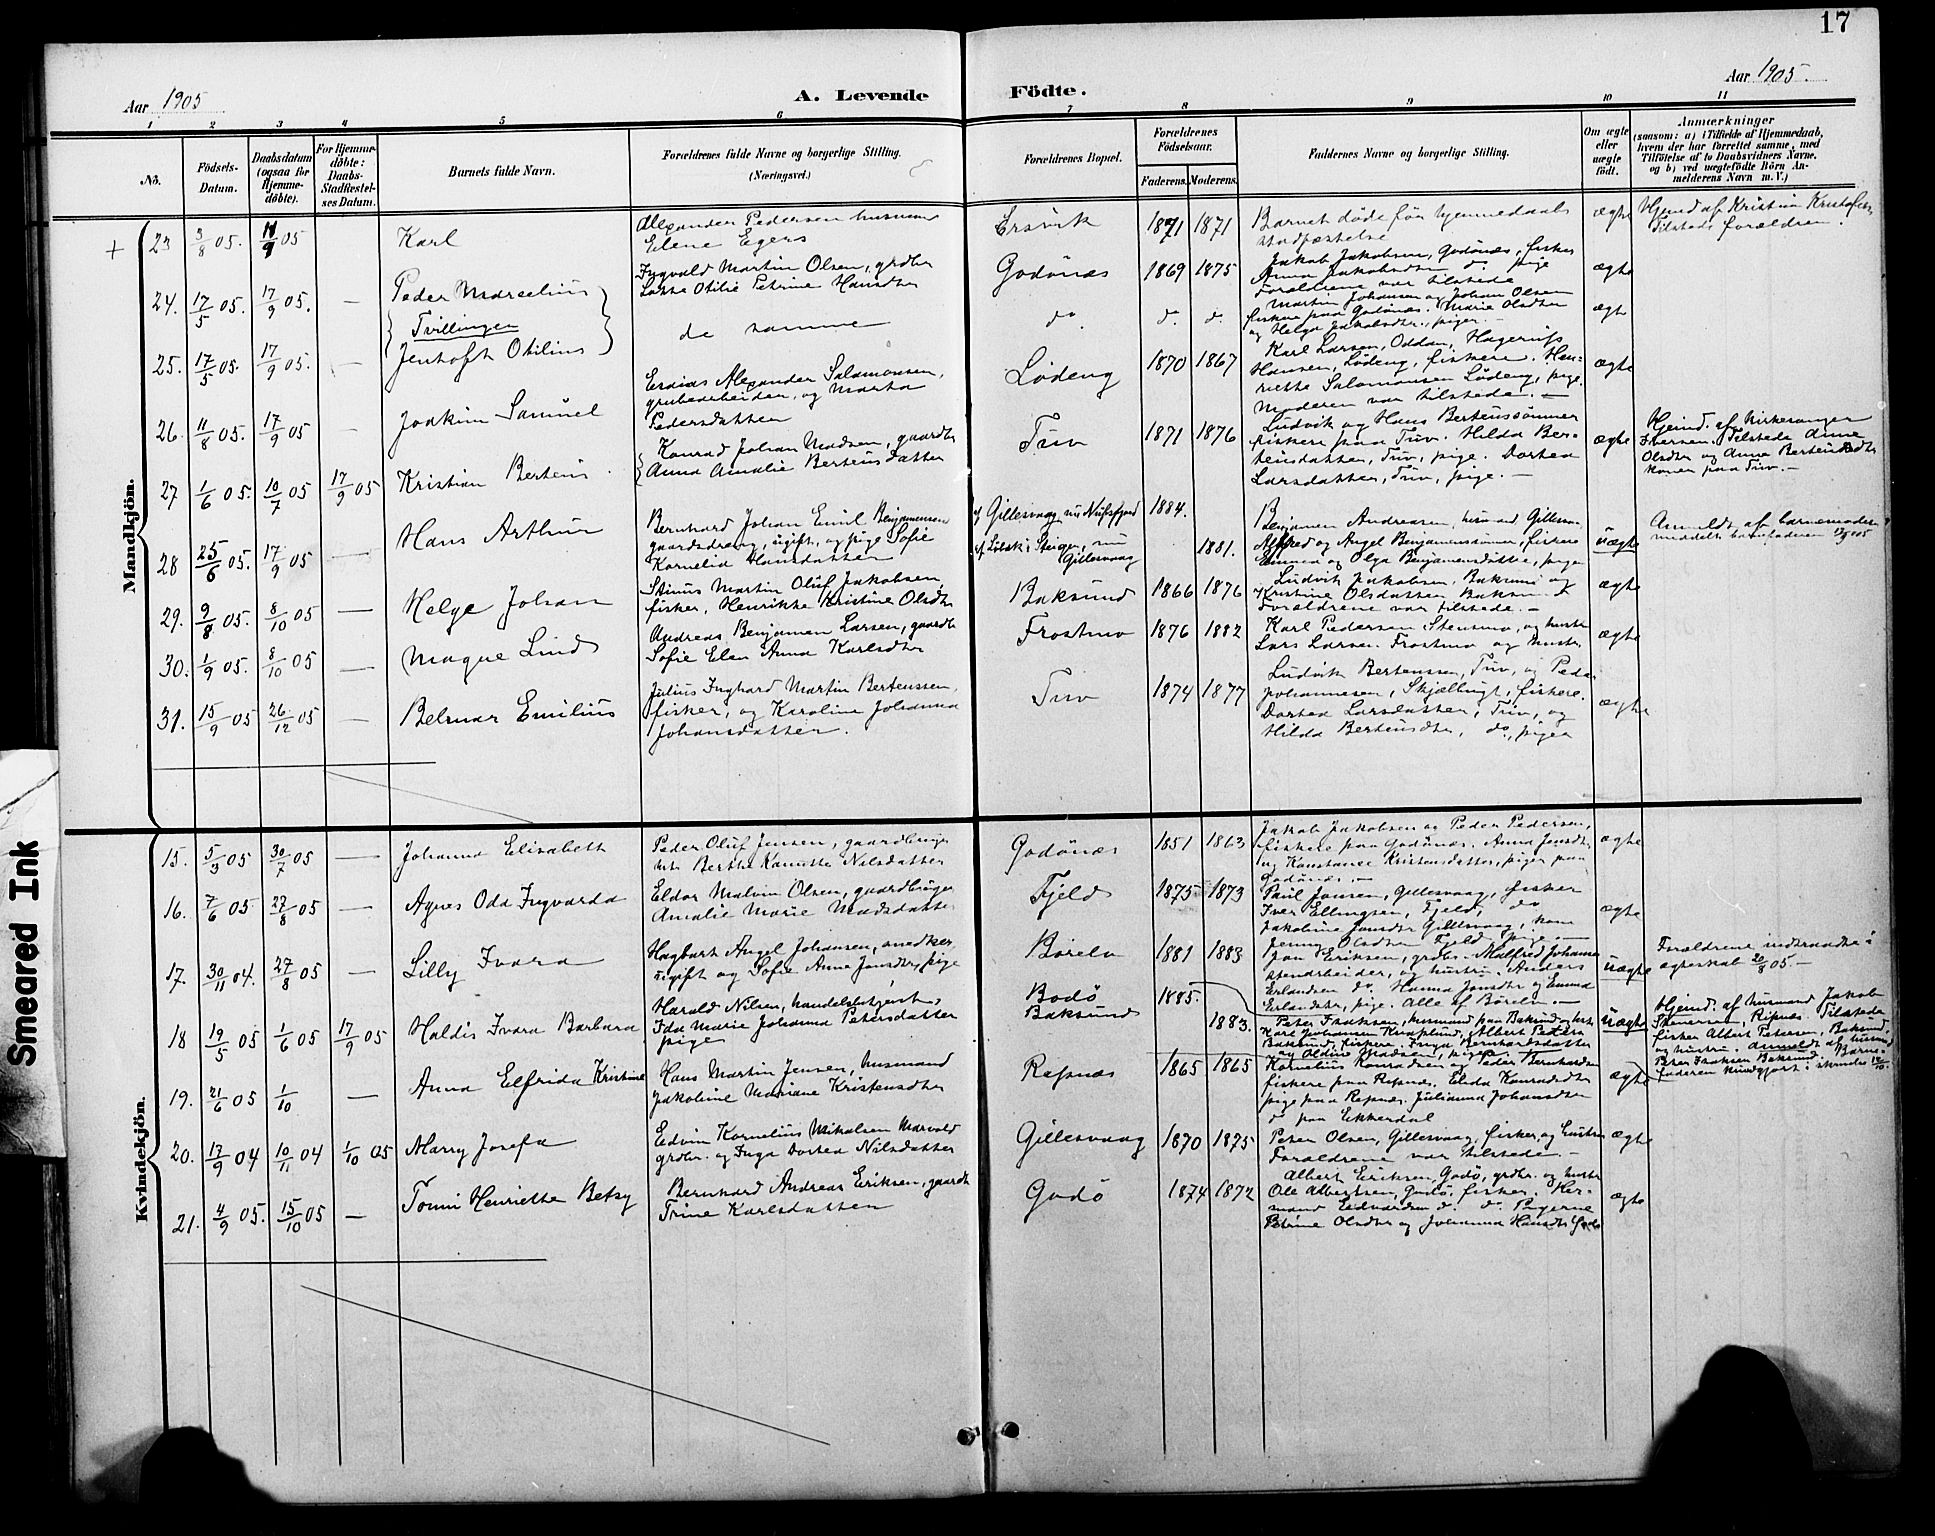 17
Aar 1905
A. Levende
Födte.
Aar 1905.
1 2 3 4 5 6 7 8 9 10 11
No.
Födsels-
Datum.
Daabsdatum
(ogsaa for
Hjemme-
döbte).
For Hjemme-
döbte:
Daabs-
Stadfæstel-
ses Datum.
Barnets fulde Navn.
Forældrenes fulde Navne og borgerlige Stilling.
(Næringsvei.)
Forældrenes Bopæl.
Forældrenes
Födselsaar.
Faderens. Moderens.
Faddernes Navne og borgerlige Stilling.
Om ægte
eller
uægte
födt.
Anmærkninger
(saasom: a) i Tilfælde af Hjemmedaab,
hvem der har forrettet samme, med
Tilföielse af to Daabsvidners Navne.
og b) ved uægtefödte Börn An-
melderens Navn m. V.)
Mandkjön.
+ 23 3/8 05. 11/9 05
Karl
Alexander Pedersen husmand
Elene Egers
Ersvik 1871 1871
Barnet døde før hjemmedaabs
stadfæstelse
ægte
Hjemd af Kristian
Tilstede forældren.
24. 17/5 05. 17/9 05. —
Peder Marcelius
Tvillinger
Ingvald Martin Olsen, grdbr
Lotte Otilie Petrine Hansdtr
Godönæs 1869 1875
Jakob Jakobsen, Godönæs, fisker
Anna Jakobsdtr do. pige
Forældrene var tilstede
ægte
25. 17/5 05. 17/9 05. —
Jentoft Otilius
de samme
do. d. d.
Martin Johansen og Johan Olsen
fiskere paa Godönæs. Marie Olsdtr
og Helga Jakobsdtr, piger. —
ægte
26. 11/8 05. 17/9 05 —
Joakim Samuel
Esaias Alexander Salamonsen,
grubearbeider, og Marta
Pedersdatter
Lödeng 1870 1867
Karl Larsen, Oddan, Hagerup
Hansen, Lödeng, fiskere. Hen-
riette Salamonsen Lödeng, pige.
Moderen var tilstede. —
ægte
27 1/6 05. 10/7 05 17/9 05
Kristian Berteus
Konrad Johan Madsen, gaardbr
Anna Amalie Berteusdatter
Tuv 1871 1876
Ludvik og Hans Berteussönner
fiskere paa Tuv. Hilda Ber-
teusdatter, Tuv, pige. Dortea
Larsdatter, Tuv, pige. —
ægte
Hjemd. af Kirkesanger
Iversen. Tilstede Anne
Olsdtr og Anna Berteusdtr
koner paa Tuv. —
28 25/6 05. 17/9 05 —
Hans Arthur
Bernhard Johan Emil Benjaminsen
gaardsdreng, ugift, og pige Sofie
Kornelia Hansdatter
Gillesvaag nu Nufsfjord
Löbsk i Steigen, nu
Gillesvaag
1884.
1881.
Benjamin Andreassen, husmand Gillesv.
Alfred og Angel Benjaminsönner, fiskere
Emma og Olga Benjaminsdöttre, piger
uægte
Anmeldt af barnemoderen
meddelt barnefaderen
29. 9/8 05. 8/10 05 —
Helge Johan
Stinus Martin Oluf Jakobsen,
fisker, Henrikke Kristine Olsdtr
Baksund 1866 1876
Ludvik Jakobsen, Baksund og
Kristine Olsdatter Baksund
Forældrene var tilstede. —
ægte
30. 1/9 05. 8/10 05 —
Magne Lind
Andreas Benjamin Larsen, gaardbr
Sofie Elen Anna Karlsdtr
Frostmo 1876 1882
Karl Pedersen Stensmo, og hustr
Lars Larsen Frostmo og hustr.
ægte
31. 15/9 05 26/12 05 —
Belmar Emilius
Julius Inghard Martin Berteussen,
fisker, og Karoline Johanna
Johansdatter.
Tuv 1874 1877
Ludvik Berteussen, Tuv, og Peder
Johannesen, Skjælbugt, fiskere.
Dortea Larsdatter, Tuv, og
Hilda Berteusdtr, do., piger
ægte
Kvindekjön.
15. 5/3 05 30/7 05 —
Johanna Elisabeth
Peder Oluf Jensen, gaardbruger
Berthe Kanutte Nilsdatter
Godönæs 1851 1863
Jakob Jakobsen og Peder Pedersen,
fiskere paa Godönæs. Anna Jonsdtr
og Konstance Kristensdatter, piger paa
Godönæs. —
ægte
16. 7/6 05 27/8 05 —
Agnes Oda Ingvarda
Eldor Malvin Olsen, gaardbruger
Amalie Marie Madsdatter
Fjeld 1875 1873
Paul Jansen, Gillesvaag, fisker
Iver Ellingsen, Fjeld, do
Jakobine Jonsdtr Gillesvaag, kone
Jenny Olsdtr Fjeld pige. —
ægte
17. 30/11 04. 27/8 05 —
Lilly Ivara
Hagbart Angel Johansen, snedker
ugift og Sofie Anne Jonsdtr, pige
Börelv 1881 1883
Jon Eriksen, grdbr. Malfred Johans
stenarbeider, og hustru. Anders
Erlandsen do. Hanna Jonsdtr og Emma
Erlandsdtr, pige. Alle af Börelv. —
uægte
Forældrene indtraadte i
ægteskab 20/8 05. —
18 19/5 05 1/6 05 17/9 05
Haldis Ivara Barbara
Harald Nilsen, handelsbetjent,
Ida Marie Johanna Petersdatter
pige
Bodö
Baksund
1885.
1883.
Peter Isaksen, husmand paa Baksund og hustr
Karl Johansen Kvæflund, Albert Peters
Baksund, fiskere, Inga Bernhardsdatter
og Oldine Madsen, piger
uægte
Hjemd. af husmand Jakob
Stensersen, Ripnes. Tilstede
fisker Albert Petersen, Baksund
og hustru. Anmeldt af husmd
Peter Isaksen Baksund. Barne-
faderen kundgjort i skrivelse
19. 21/6 05 1/10 —
Anna Elfrida Kristine
Hans Martin Jensen, husmand
Jakobine Mariane Kristensdtr
Repnæs 1865 1865
Kornelius Konradsen og Peder Bernhardsen
fiskere paa Repnæs. Elida Konradsdtr
pige paa Repnæs. Julianna Johansdtr
do paa Ekkerdal
ægte
20. 17/9 04 10/11 04 1/10 05
Marry Josefa
Edvin Kornelius Mikalsen Marvold
grdbr. og Inga Dortea Nilsdatter
Gillesvaag 1870 1875
Peter Olsen, Gillesvaag, fisker, og hustru
Forældrene var tilstede. —
ægte
21. 4/9 05. 15/10 05 —
Tomi Henriette Betsy
Bernhard Andreas Eriksen, gaardbr
Trine Karlsdatter
Godö 1874 1872
Albert Eriksen, Godö, grdbr. og hustr
Ole Albertsen, Godö, fisker. Her-
mand Edvardsen do. do. Pigerne
Petrine Olsdtr og Johanna Hansdtr Godö
ægte
Smeared Ink